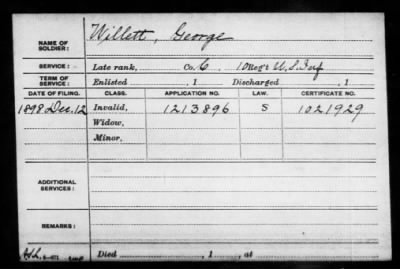 NAME OF SOLDIER: Willett, George
SERVICE: Late rank, Co. C, 10 Reg't U.S. Inf
TERM OF SERVICE: Enlisted , 1 Discharged , 1
DATE OF FILING. CLASS. APPLICATION NO. LAW. CERTIFICATE NO.
1898 Dec. 12 Invalid, 1213896 S 1021929
Widow,
Minor,
ADDITIONAL SERVICES:
REMARKS:
Died , 1 , at